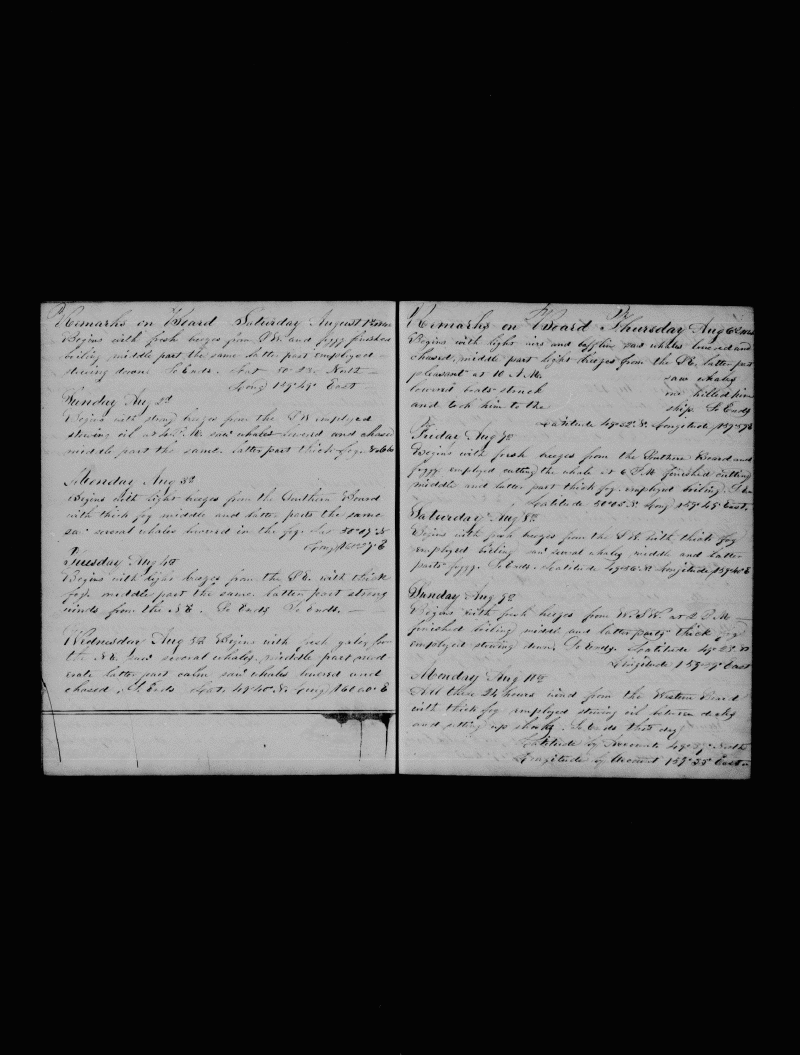 Remarks on Board Saturday August 1st
Begins with fresh breezes from S W and foggy finished
boiling middle part the same latter part employed
stowing down So Ends. Lat 50° 23 North
Long 159° 49' East
Sunday Aug 2d
Begins with strong breezes from the S W employed
stowing oil at 4 P.M. saw whales lowered and chased
middle part the same latter part thick fog
Monday Aug 3d
Begins with light breezes from the Southern Board
with thick fog middle and latter parts the same
saw several whales lowered in the fog Lat 50° 17' N
Long
Tuesday Aug 4th
Begins with light breezes from the S E with thick
fog middle part the same latter part strong
winds from the N E. So Ends So Ends.
Wednesday Aug 5th Begins with fresh gales from
the N E saw several whales, middle part mod
erate latter part calm saw whales lowered and
chased So Ends Lat 49° 40' N. Long 160° 00' E
Remarks on Board Thursday Aug 6th
Begins with light airs and baffling saw whales lowered and
chased, middle part light breezes from the S E latter part
pleasant at 10 A.M. saw whales
lowered boats struck one killed him
and took him to the ship. So Ends
Latitude 49° 52' N. Longitude
Friday Aug 7th
Begins with fresh breezes from the Southern Board and
foggy employed cutting the whale at 6 P.M. finished cutting
middle and latter part thick fog employed boiling
Latitude 50° 05' N Long 159° 45' East.
Saturday Aug 8th
Begins with fresh breezes from the S W with thick fog
employed boiling saw several whales middle and latter
parts foggy. So Ends. Latitude 49° 56' N Longitude 159° 40' E
Sunday Aug 9th
Begins with fresh breezes from W.S.W. at 2 P.M
finished boiling middle and latter parts thick fog
employed stowing down. So Ends. Latitude 49° 23' N
Longitude East
Monday Aug 10th
All these 24 hours wind from the Western Board
with thick fog employed stowing oil between decks
and setting up shooks. So Ends this day
Latitude by Account 49° North
Longitude by Account 159° 35' East